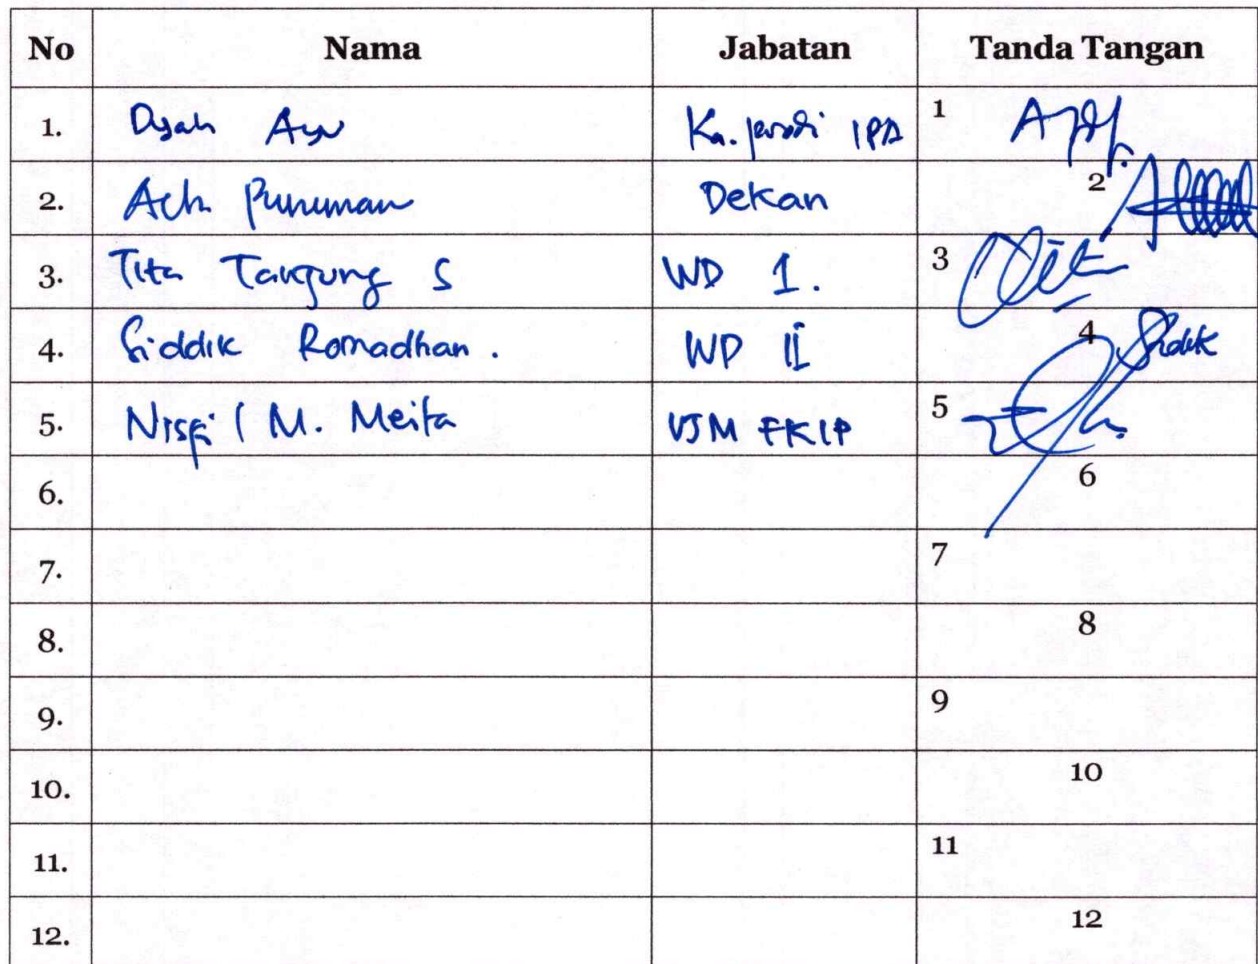 No Nama Jabatan Tanda Tangan
1. Dyah Ayu Ka. prodi IPA 1
2. Ach. Purnuman Dekan 2
3. Tita Tanjung S WD 1. 3
4. Siddik Romadhan. WD II 4 Siddik
5. Nisfil M. Meita UJM FKIP 5
6. 6
7. 7
8. 8
9. 9
10. 10
11. 11
12. 12